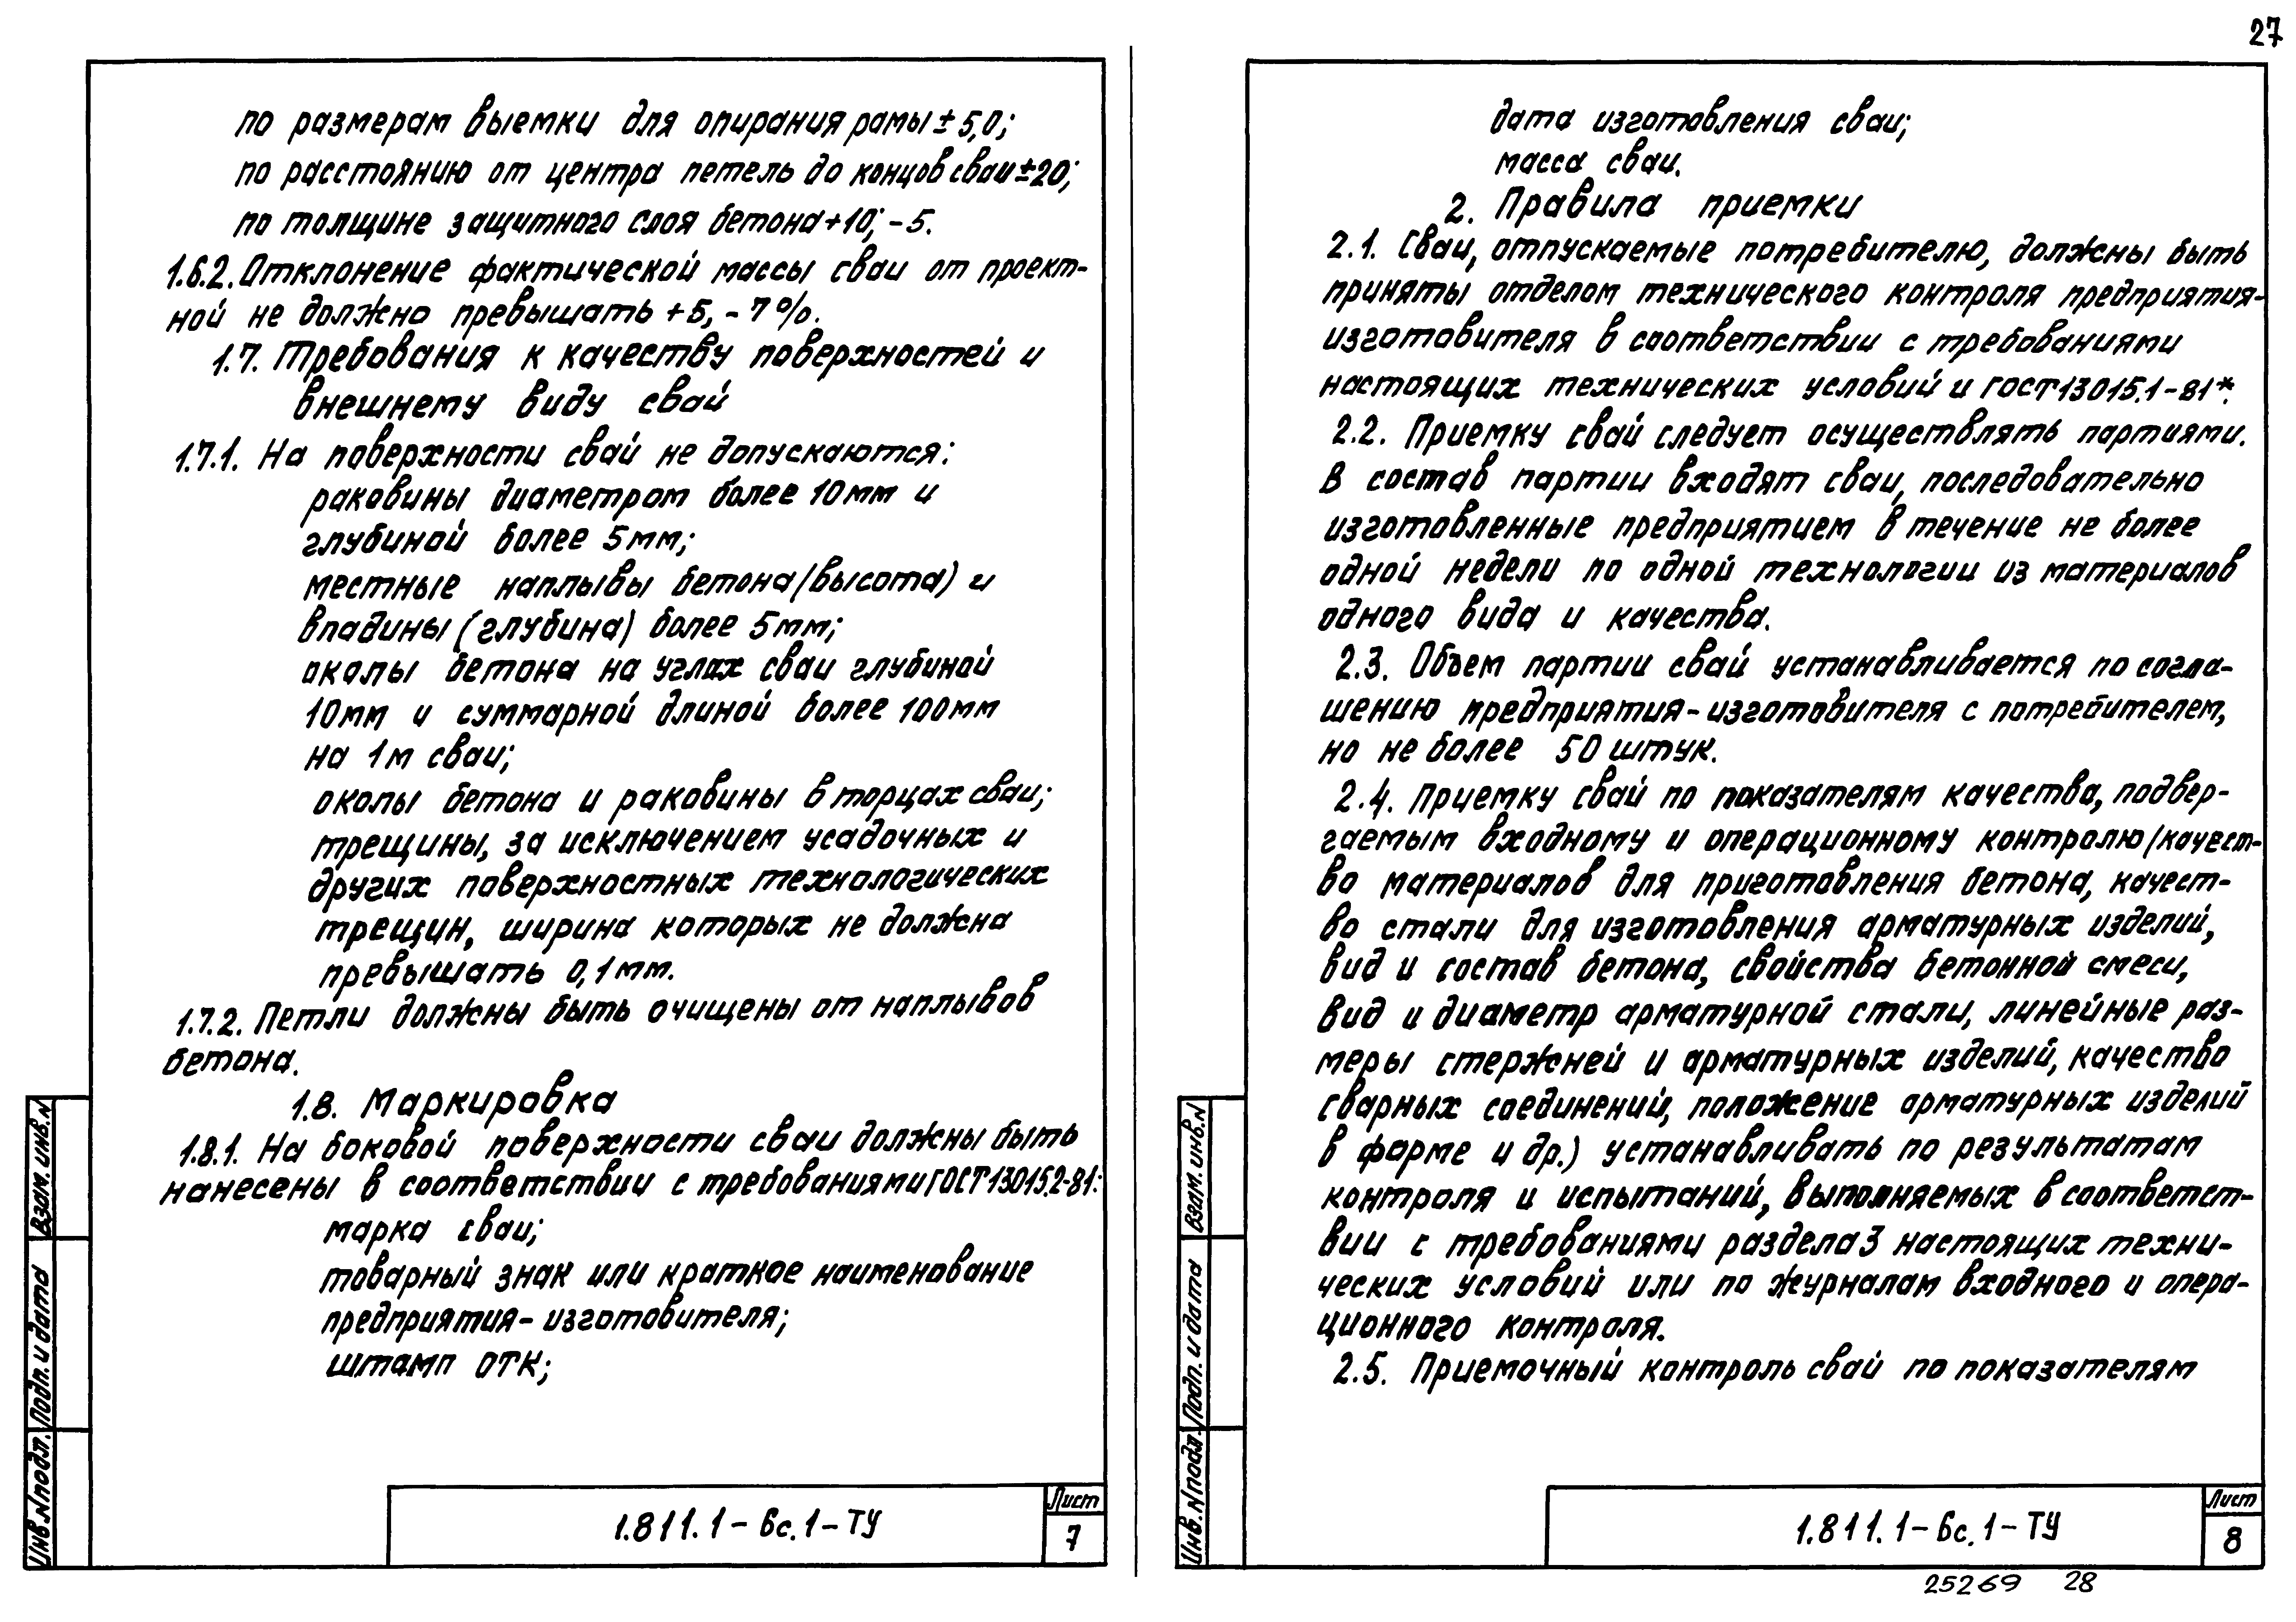 27
по размерам выемки для опирания рамы ± 5,0;
по расстоянию от центра петель до концов сваи ± 20;
по толщине защитного слоя бетона +10; -5.
1.6.2. Отклонение фактической массы сваи от проект-
ной не должно превышать +5, -7%.
1.7. Требования к качеству поверхностей и
внешнему виду свай
1.7.1. На поверхности свай не допускаются:
раковины диаметром более 10мм и
глубиной более 5мм;
местные наплывы бетона (высота) и
впадины (глубина) более 5мм;
околы бетона на углах сваи глубиной
10мм и суммарной длиной более 100мм
на 1м сваи;
околы бетона и раковины в торцах сваи;
трещины, за исключением усадочных и
других поверхностных технологических
трещин, ширина которых не должна
превышать 0,1мм.
1.7.2. Петли должны быть очищены от наплывов
бетона.
1.8. Маркировка
1.8.1. На боковой поверхности сваи должны быть
нанесены в соответствии с требованиями ГОСТ 13015.2-81:
марка сваи;
товарный знак или краткое наименование
предприятия-изготовителя;
штамп ОТК;
Взам. инв. N
Подп. и дата
Инв. N подл.
1.811.1-6с.1-ТУ
Лист
7
дата изготовления сваи;
масса сваи.
2. Правила приемки
2.1. Сваи, отпускаемые потребителю, должны быть
приняты отделом технического контроля предприятия-
изготовителя в соответствии с требованиями
настоящих технических условий и ГОСТ 13015.1-81*.
2.2. Приемку свай следует осуществлять партиями.
В состав партии входят сваи, последовательно
изготовленные предприятием в течение не более
одной недели по одной технологии из материалов
одного вида и качества.
2.3. Объем партии свай устанавливается по согла-
шению предприятия-изготовителя с потребителем,
но не более 50 штук.
2.4. Приемку свай по показателям качества, подвер-
гаемым входному и операционному контролю (качест-
во материалов для приготовления бетона, качест-
во стали для изготовления арматурных изделий,
вид и состав бетона, свойства бетонной смеси,
вид и диаметр арматурной стали, линейные раз-
меры стержней и арматурных изделий, качество
сварных соединений, положение арматурных изделий
в форме и др.) устанавливать по результатам
контроля и испытаний, выполняемых в соответст-
вии с требованиями раздела 3 настоящих техни-
ческих условий или по журналам входного и опера-
ционного контроля.
2.5. Приемочный контроль свай по показателям
Взам. инв. N
Подп. и дата
Инв. N подл.
1.811.1-6с.1-ТУ
Лист
8
25269 28